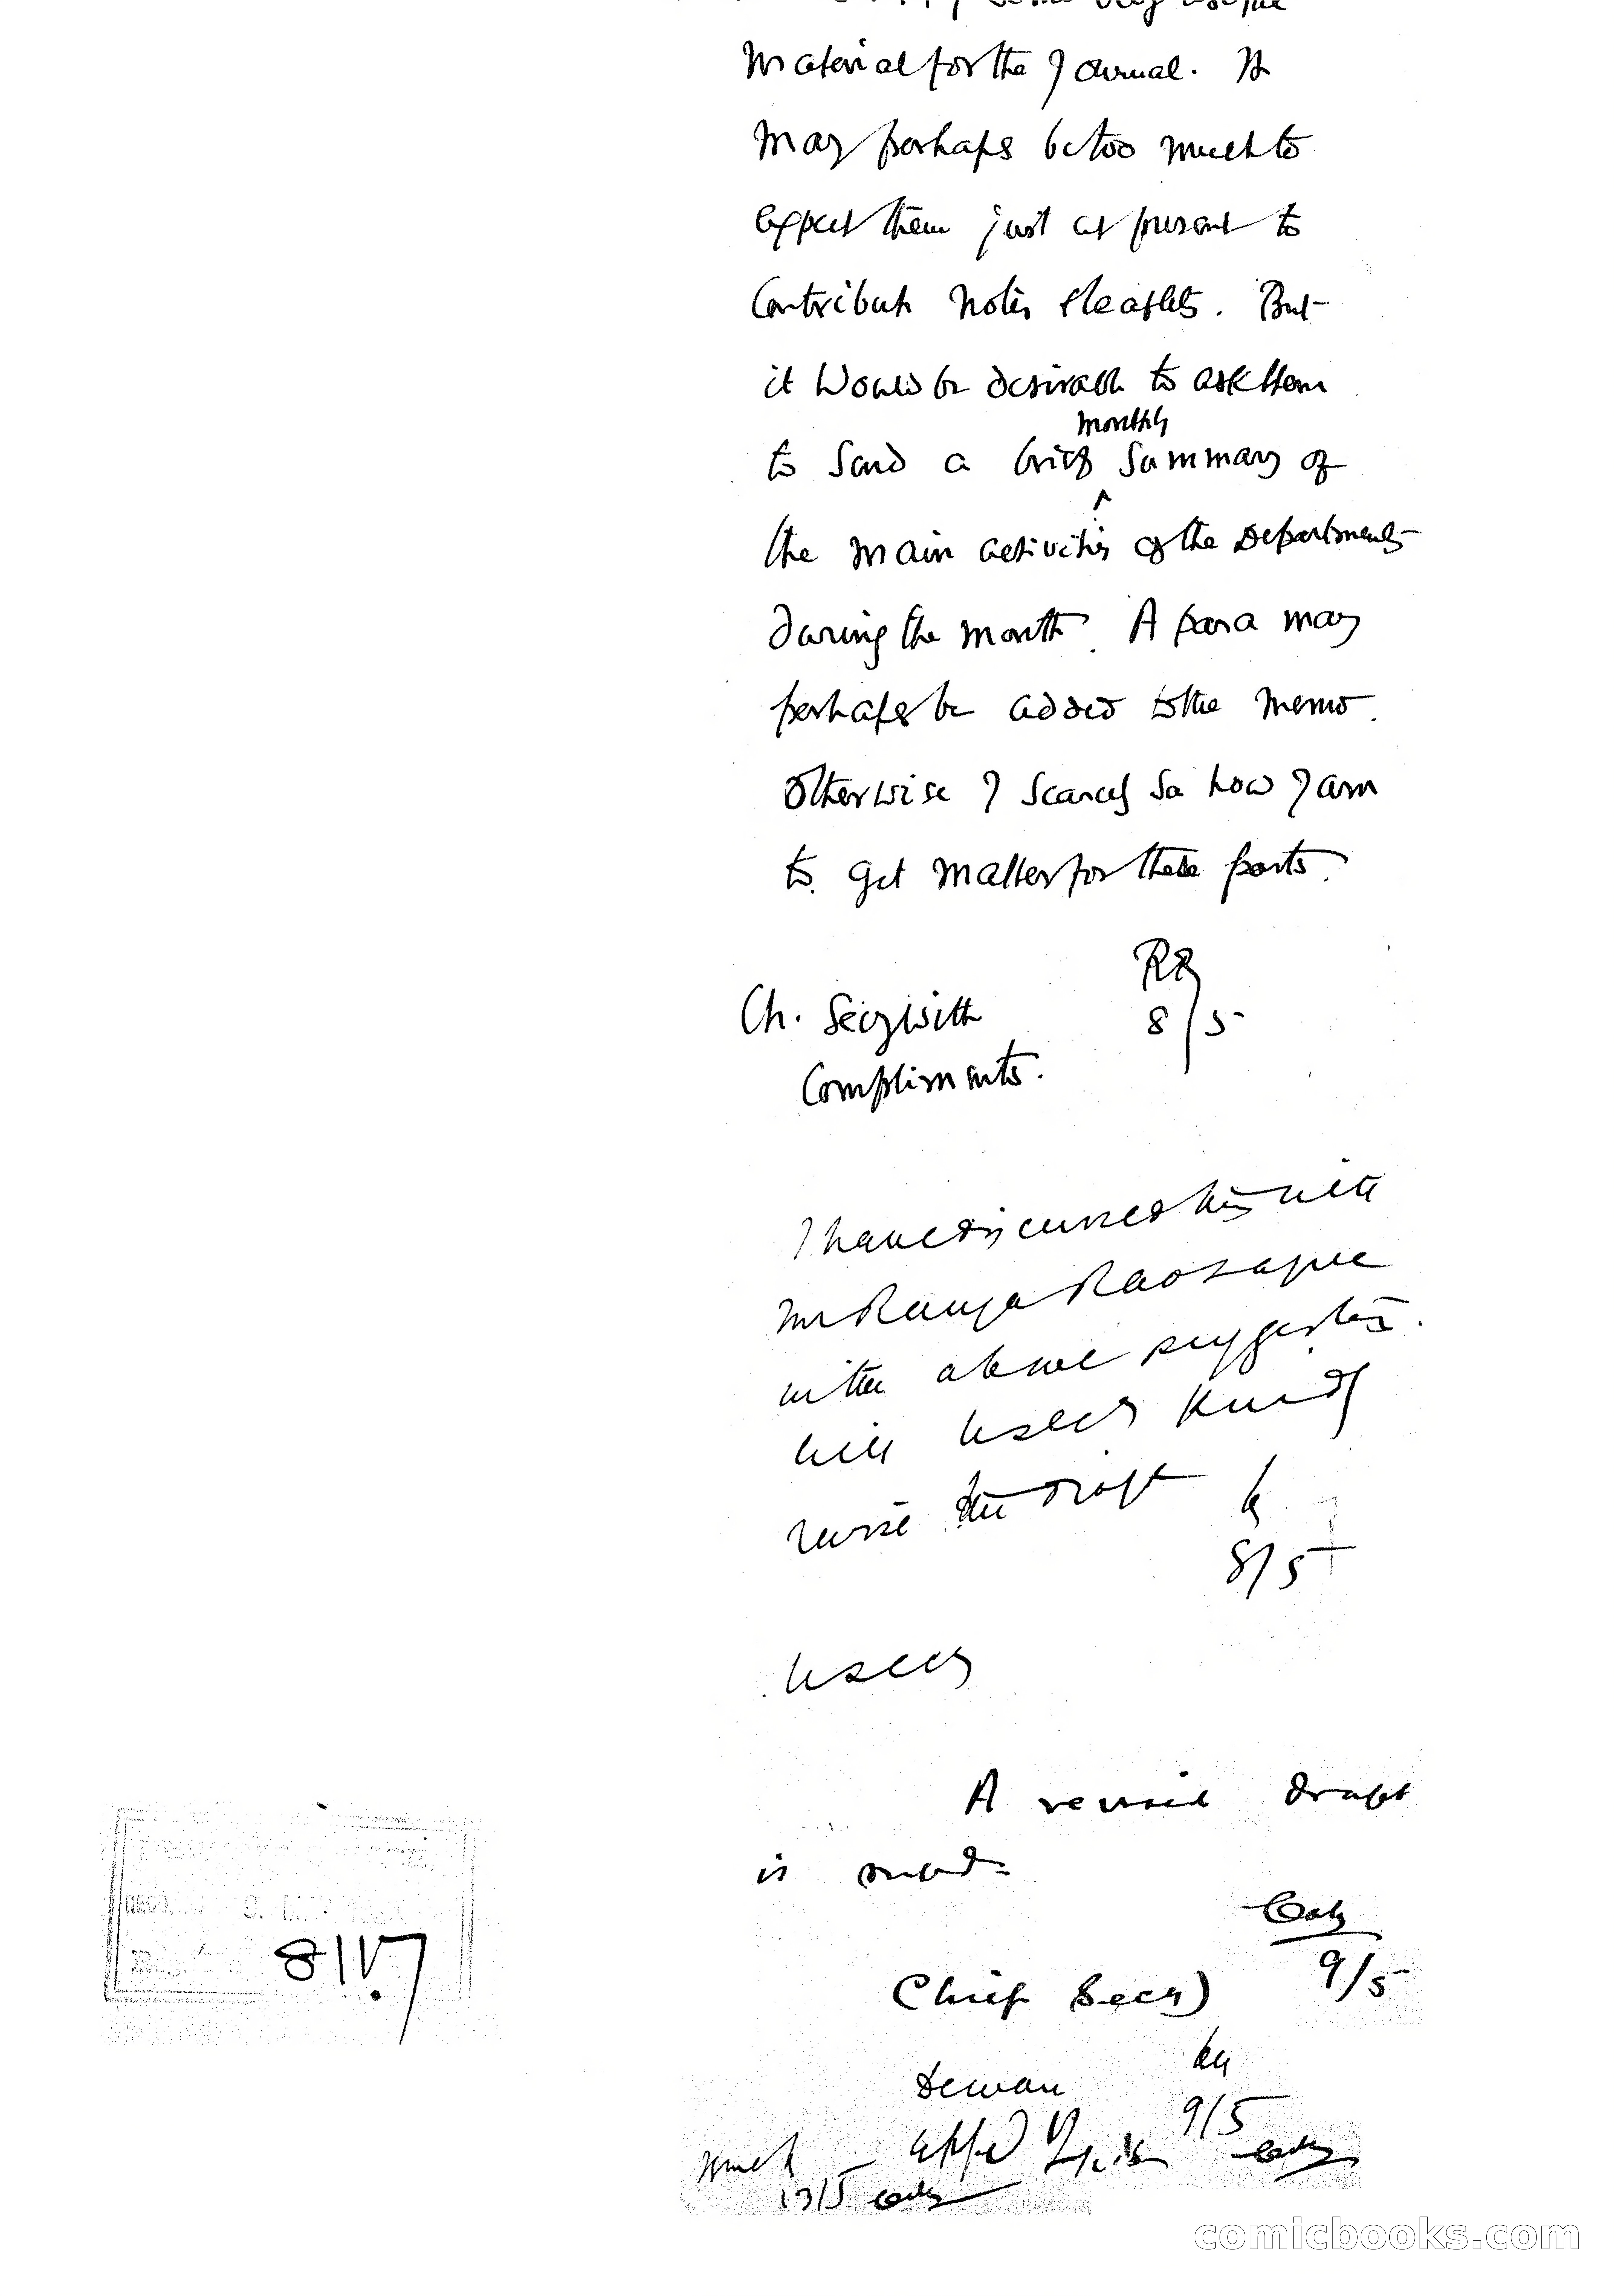 some very useful
Material for the Journal. It
may perhaps be too much to
expect them just at present to
Contribute Notes & leaflets. But
it would be desirable to ask them
to send a brief monthly summary of
the main activities of the Departments
during the month. A para may
perhaps be added to the memo.
Otherwise I scarcely see how I am
to get matter for these parts.
RR
8/5
Ch. Secy with
Compliments.
I have discussed this with
Mr Ranga Rao & agree
with above suggestion.
will Usecy kindly
revise the draft
8/5
Usecy
A revised draft
is subd:
9/5
(Chief Secy)
Dewan
9/5
appd
13/5
comicbooks.com